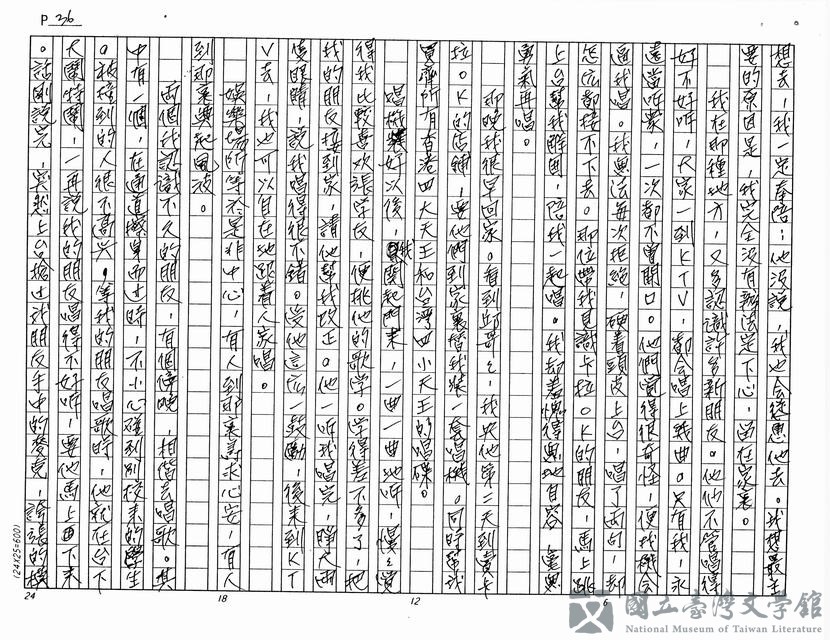 P 36
想去，我一定奉陪；他沒說，我也會慫恿他去。我想最主
要的原因是，我完全沒有辦法定下心，留在家裏。
我在那種地方，又多認識許多新朋友。他們不管唱得
好不好听，大家一到KTV，都會唱上幾曲。只有我，永
遠當听眾，一次都不曾開口。他們覺得很奇怪，便找機會
逼我唱。我無法每次拒絕，硬着頭皮上台，唱了兩句，却
怎么都接不下去。那位帶我見識卡拉OK的朋友，馬上跳
上台幫我解圍，陪我一起唱。我却羞愧得無地自容，毫無
勇氣再唱。
那晚我很早回家。看到邱哥哥，我央他第二天到賣卡
拉OK的店鋪，要他們到家裏替我裝一套唱機。同時幫我
買齊所有香港四大天王和台灣四小天王的唱碟。
唱機裝好以後，我關起門來，一曲一曲地听，慢慢覺
得我比較喜欢張学友，便挑他的歌学。学得差不多了，把
我的朋友接到家，請他幫我改正。他一听我唱完，睜大兩
隻眼睛，說我唱得很不錯。受他這么一鼓勵，後來到KT
V去，我也可以自在地跟着人家唱。
娛樂場所等於是非中心，有人到那裏尋求心安，有人
到那裏興起風波。
兩個我認識不久的朋友，有個傍晚，相偕去唱歌。其
中有一個，在通道擦身而过時，不小心碰到別校來的學生
。被碰到的人很不高兴。等我的朋友唱歌時，他就在台下
大鬧特鬧，一再說我的朋友唱得不好听，要他馬上下來
。話剛說完，突然上台搶过我朋友手中的麥克，誇張的模
24
18
12
6
(24×25=600)
國立臺灣文学館
National Museum of Taiwan Literature